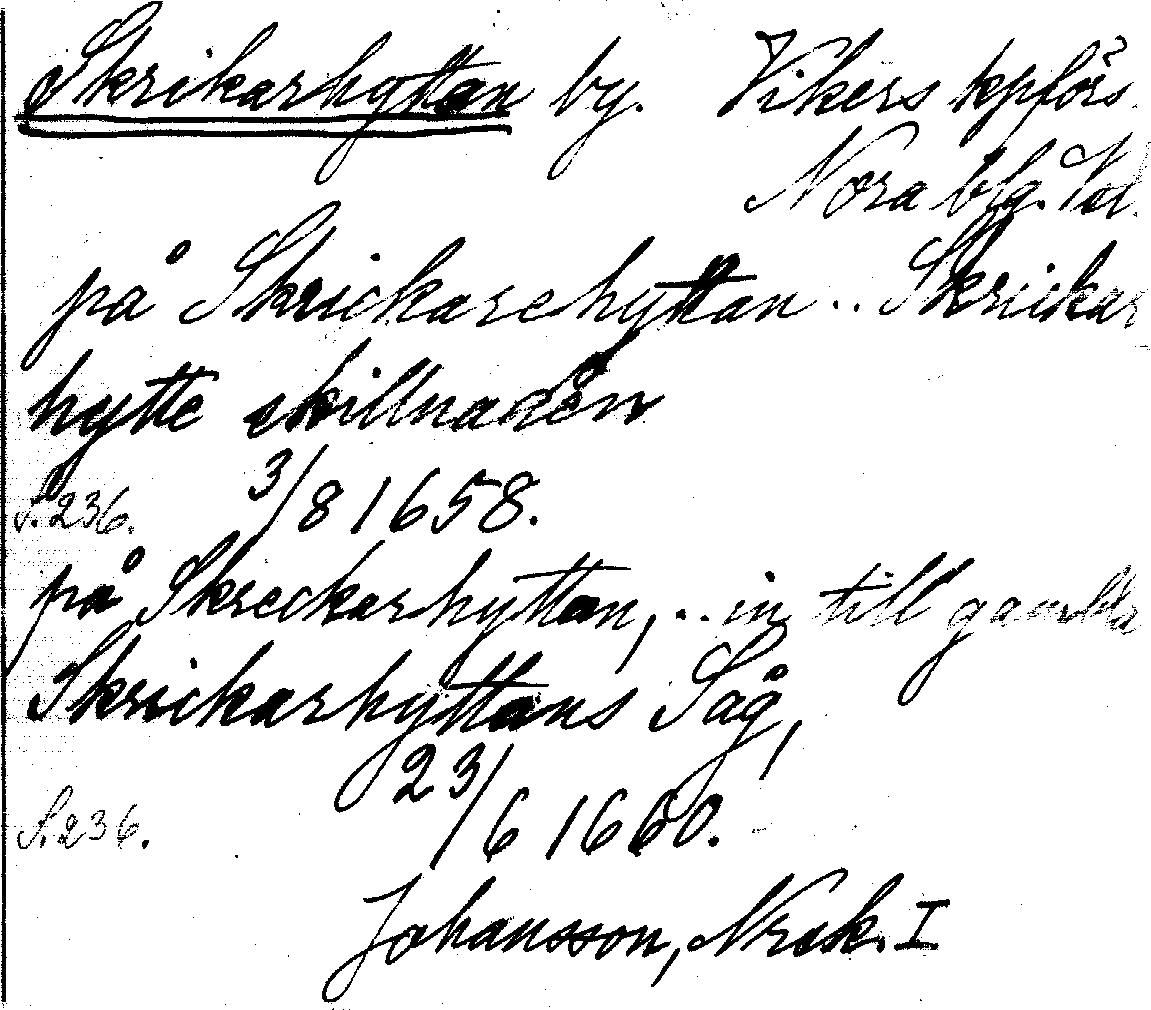 Skrikarhyttan by. Vikers kpförs.
Nora blg. Vstl.
på Skrickarehyttan .. Skrickar
hytte skillnaden
S. 236. 3/8 1658.
på Skreckarhyttan, .. in till gambla
Skrickarhyttans Såg,
23/6 1660.
S. 236.
Johansson, Nrak. I